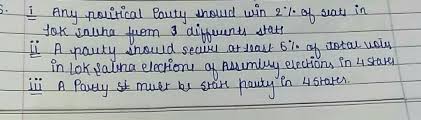 5. i Any political Party should win 2% of seats in
lok sabha from 3 different stats
ii A party should secure at least 6% of total votes
in Lok Sabha elections of Assembly elections in 4 states
iii A Party st must be state party in 4 states.